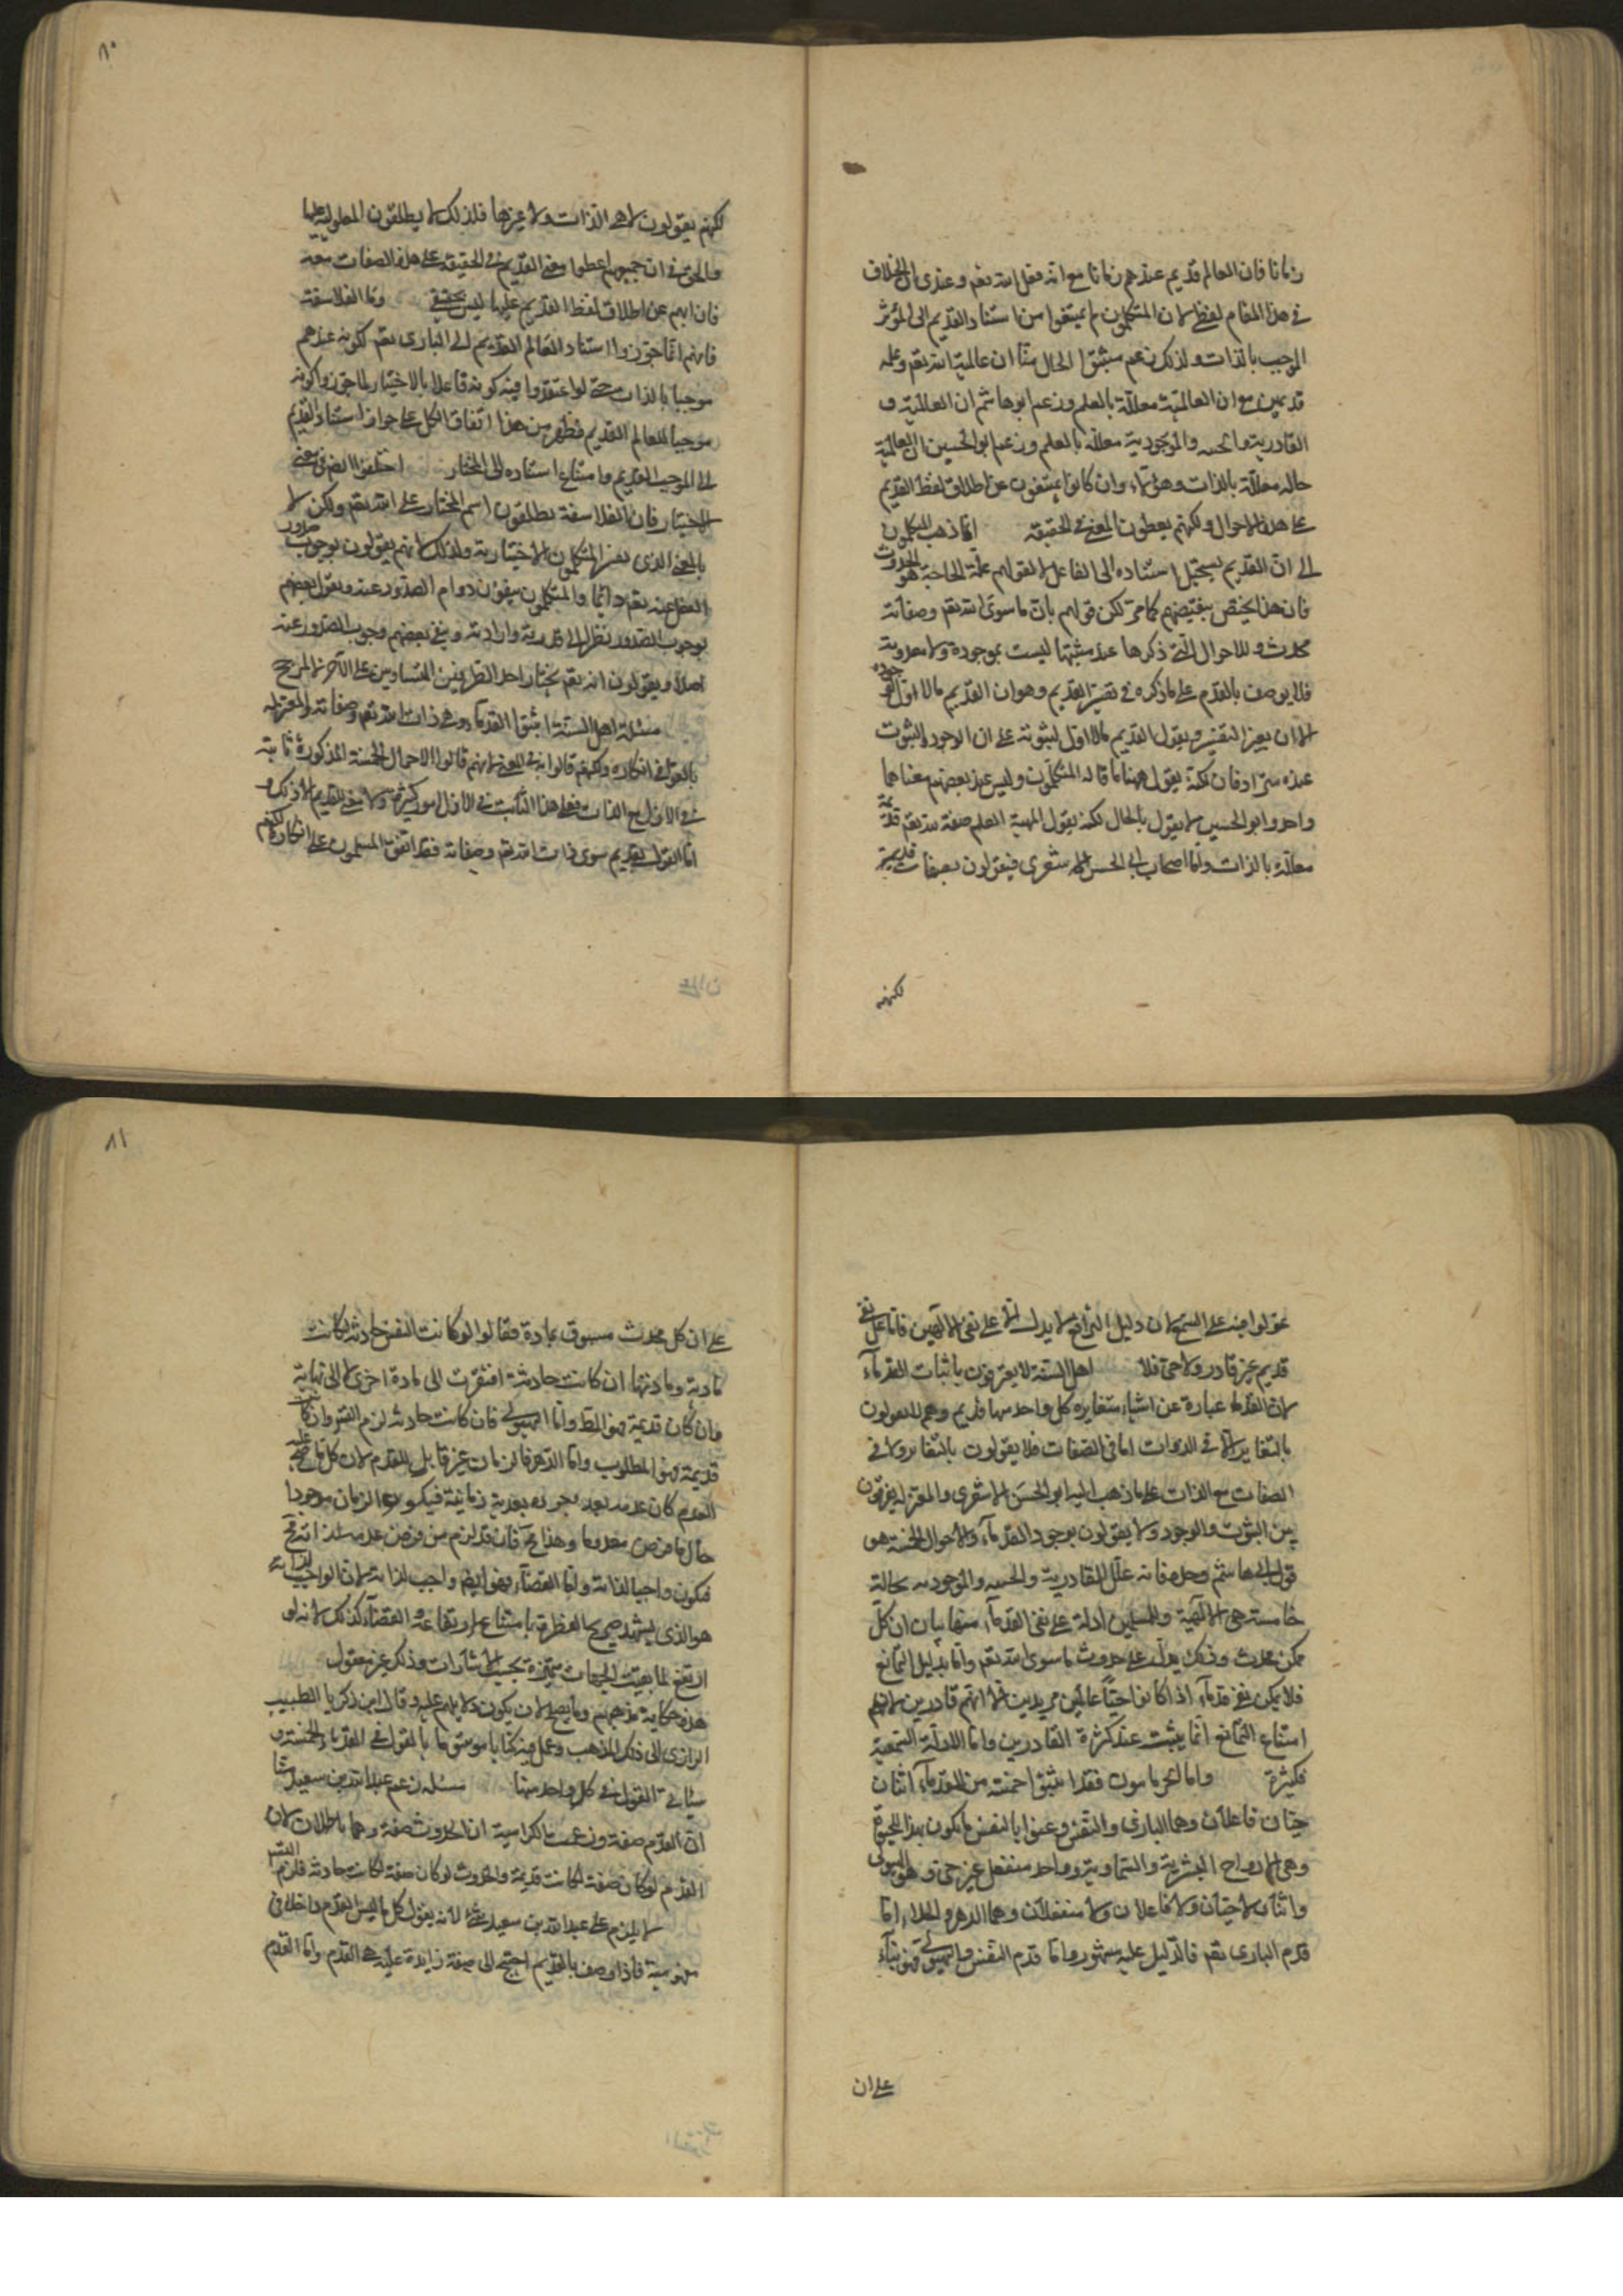 زمانا فان العالم قديم عندهم زمانا مع انه فعل الله تعم وعندى ان الخلاف
فى هذا المقام لفظى لان المتكلمون لم يمتنعوا من استناد القديم الى المؤثر
الموجب بالذات ولذلك زعم مثبتوا الحال منّا ان عالمية الله تعم وعلمه
قديمين مع ان العالمية معللة بالعلم وزعم ابو هاشم ان العالمية و
القادرية والحيية والموجودية معللة بالعلم وزعم ابو الحسين ان العالمية
حالة معللة بالذات وهؤلآء وان كانوا يمتنعون عن اطلاق لفظ القديم
على هذه الاحوال ولكنهم يعطون المعنى فى الحقيقة انما ذهب المتكلمون
الى انّ القديم يستحيل استناده الى الفاعل لا لقولهم علّة الحاجة هو الحدوث
فان هذا يختص ببعضهم كما مرّ لكن قولهم بانّ ما سوى الله تعم وصفاته
محدث وللاحوال التى ذكرها عند مثبتها ليست بموجودة ولا معدومة
فلا يوصف بالقدم على ما ذكره فى تفسير القديم وهو ان القديم ما لا اول لوجوده
الا ان يغير التفسير ويقول القديم ما لا اول لثبوته على ان الوجود والثبوت
عنده مترادفان لكنه يقول ههنا ما قاله المتكلمون وليس عند بعضهم معناهما
واحد وابو الحسين لا يقول بالحال لكنه يقول العلم صفة لله تعم قديمة
معللة بالذات وامّا اصحاب ابى الحسن الاشعرى فيقولون بصفات قديمة
لكنهم
٨٠
لكنهم يقولون لا هى الذات ولا غيرها فلذلك لا يطلقون المعلولية عليها
والحق فى ان جميعهم اعطوا معنى القديم فى الحقيقة على هذه الصفات معه
فان ابيهم عن اطلاق لفظ القديم عليها ليس بحقيقى وامّا الفلاسفة
فانهم انما جوّزوا استناد العالم القديم الى البارى تعم لكونه عندهم
موجبا بالذات حتى لو اعتقدوا فيه كونه فاعلا بالاختيار لما جوزوا كونه
موجبا للعالم القديم فظهر من هذا اتفاق الكل على جواز استناد القديم
الى الموجب القديم وامتناع استناده الى المختار اختلفوا ايضا فى معنى
الاختيار فان الفلاسفة يطلقون اسم المختار على الله تعم ولكن لا
بالمعنى الذى يفسر المتكلمون الاختيار به وذلك لانهم يقولون بوجوب صدور
الفعل عنه تعم دائما والمتكلمون ينفون دوام الصدور عنه ويقول بعضهم
بوجوب الصدور نظرا الى قدرته وارادته وينفى بعضهم وجوب الصدور عنه
اصلا ويقولون انه تعم يختار احد الطرفين المتساويين على الآخر لا لمرجح
مسئلة اهل السنة اثبتوا القدماء وهى ذات الله تعم وصفاته والمعتزلة
بالغوا فى انكاره ولكنهم قالوا به فى المعنى لانهم قالوا الاحوال الخمسة المذكورة ثابتة
فى الازل مع الذات فعلى هذا الثابت فى الازل امور كثيرة ولا معنى للقديم الا ذلك و
امّا القول بقديم سوى ذات الله تعم وصفاته فقد اتفق المسلمون على انكاره لكنهم
عوّلوا فيه على السمع لان دليل التمانع لا يدل الا على نفى الالهين فاما على نفى
قديم غير قادر ولا حى فلا اهل السنة لا يعترفون باثبات القدمآء
لان القدماء عبارة عن اشياء متغايرة كل واحد منها قديم وهم لا يقولون
بالتغاير الا فى الذوات اما فى الصفات فلا يقولون بالتغاير ولا فى
الصفات مع الذات على ما ذهب اليه ابو الحسن الاشعرى والمعتزلة يفرقون
بين الثبوت والوجود ولا يقولون بوجود القدمآء والاحوال الخمسة هو
قول ابى هاشم وحده فانه علّل القادرية والحيية والموجودية بحالة
خامسة هى الالهية وللمسلمين ادلة على نفى القدمآء منها بيان ان كل
ممكن محدث وذلك يدل على حدوث ما سوى الله تعم وامّا بدليل التمانع
فلا يمكن نفى قدمآء اذا كانوا احياءً عالمين مريدين الا انهم قادرين لان
امتناع التمانع انما يثبت عند كثرة القادرين وامّا الادلة السمعية
فكثيرة وامّا الحرنانيون فقد اثبتوا خمسة من القدمآء اثنان
حيّان فاعلان وهما البارى والنفس وعنوا بالنفس ما يكون مبدأ للحيوة
وهى الارواح البشرية والسماوية وواحد منفعل غير حى وهو الهيولى
واثنان لا حيّان ولا فاعلان ولا منفعلان وهما الدهر والخلاء امّا
قدم البارى تعم فالدليل عليه مشهور وامّا قدم النفس والهيولى فهو بناء
على ان
٨١
على ان كل محدث مسبوق بمادة فقالوا لو كانت النفس حادثة لكانت
مادية ومادتها ان كانت حادثة افتقرت الى مادة اخرى لا الى نهاية
وان كان قديمة فهو المطلوب وامّا الهيولى فان كانت حادثة لزم التسلسل وان كانت
قديمة فهو المطلوب وامّا الدهر فالزمان غير قابل للعدم لان كل ما صح عليه
العدم كان عدمه بعد وجوده بعدية زمانية فيكون الزمان موجودا
حال ما فرض معدوما وهذا محال فاذن قد لزم من فرض عدمه لذاته محال
فيكون واجبا لذاته وامّا الفضآء فهو ايضا واجب لذاته لان الواجب لذاته
هو الذى يشهد صريح الفطرة بامتناع ارتفاعه والفضآء كذلك لانه لو
ارتفع لما بقيت الجهات متميزة بحسب الاشارات وذلك غير معقول
هذه حكاية مذهبهم وما يصلح لان يكون دلائلهم عليه وقال ابن زكريا الطبيب
الرازى الى ذلك المذهب وعمل فيه كتابا موسوما بالقول فى القدماء الخمسة و
سيأتى القول فى كل واحد منها مسئلة زعم عبد الله بن سعيد منّا
ان القدم صفة وزعمت الكرامية ان الحدوث صفة وهما باطلان لان
القدم لو كان صفة لكانت قديمة والحدوث لو كان صفة لكانت حادثة فلزم التسلسل
لا يلزم على عبد الله بن سعيد شئ لانه يقول كل ما ليس القدم داخلا فى
مفهومه فاذا وصف بالقديم احتيج الى صفة زايدة عليه هى القدم وامّا القدم